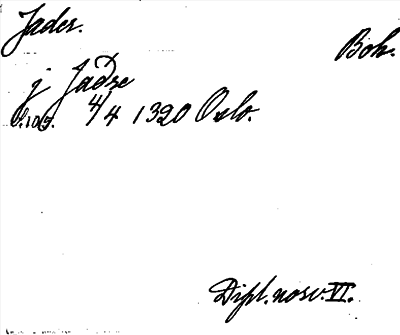 Jader.
Boh.
j Jadre
s. 105. 4/4 1320 Oslo.
Dipl. norv. VI.